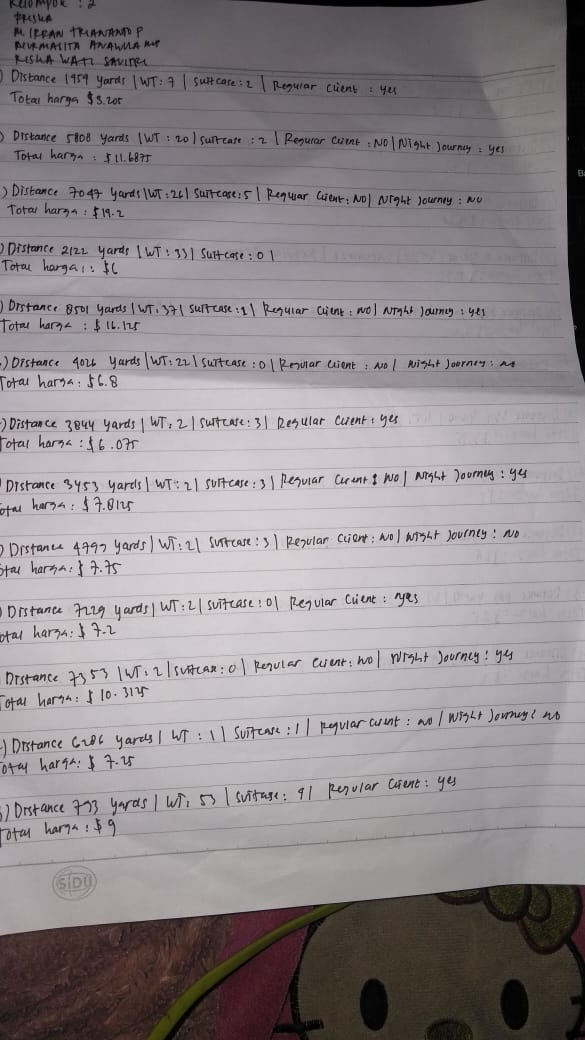 Kelompok : 2
PRISKA
M. IRFAN TRIANANTO P
NURMALITA
RISKA WATI SAVITRI
) Distance 1959 yards | WT : 7 | Suitcase : 2 | Regular Client : yes
Total harga $5.205
) Distance 5808 yards | WT : 20 | Suitcase : 2 | Regular Client : NO | Night Journey : yes
Total harga : $11.6875
) Distance 7047 yards | WT : 26 | Suitcase : 5 | Regular Client : NO | Night Journey : NO
Total harga : $19.2
) Distance 2122 yards | WT : 33 | Suitcase : 0 |
Total harga : $6
) Distance 8501 yards | WT : 37 | Suitcase : 1 | Regular Client : NO | Night Journey : yes
Total harga : $16.125
) Distance 4026 yards | WT : 22 | Suitcase : 0 | Regular Client : NO / Night Journey : no
Total harga : $6.8
) Distance 3844 yards | WT : 2 | Suitcase : 3 | Regular Client : yes
Total harga : $6.075
Distance 3453 yards | WT : 2 | Suitcase : 3 | Regular Client : NO | Night Journey : yes
otal harga : $7.8125
) Distance 4797 yards | WT : 2 | Suitcase : 3 | Regular Client : NO | Night Journey : NO
otal harga : $7.75
) Distance 7229 yards | WT : 2 | Suitcase : 0 | Regular Client : yes
otal harga : $7.2
Distance 7353 | WT : 2 | Suitcase : 0 | Regular Client : NO | Night Journey : yes
Total harga : $10.3125
) Distance 6286 yards | WT : 1 | Suitcase : 1 | Regular Client : no / Night Journey : no
otal harga : $7.25
) Distance 793 yards | WT : 53 | Suitcase : 9 | Regular Client : yes
Total harga : $9
SIDU